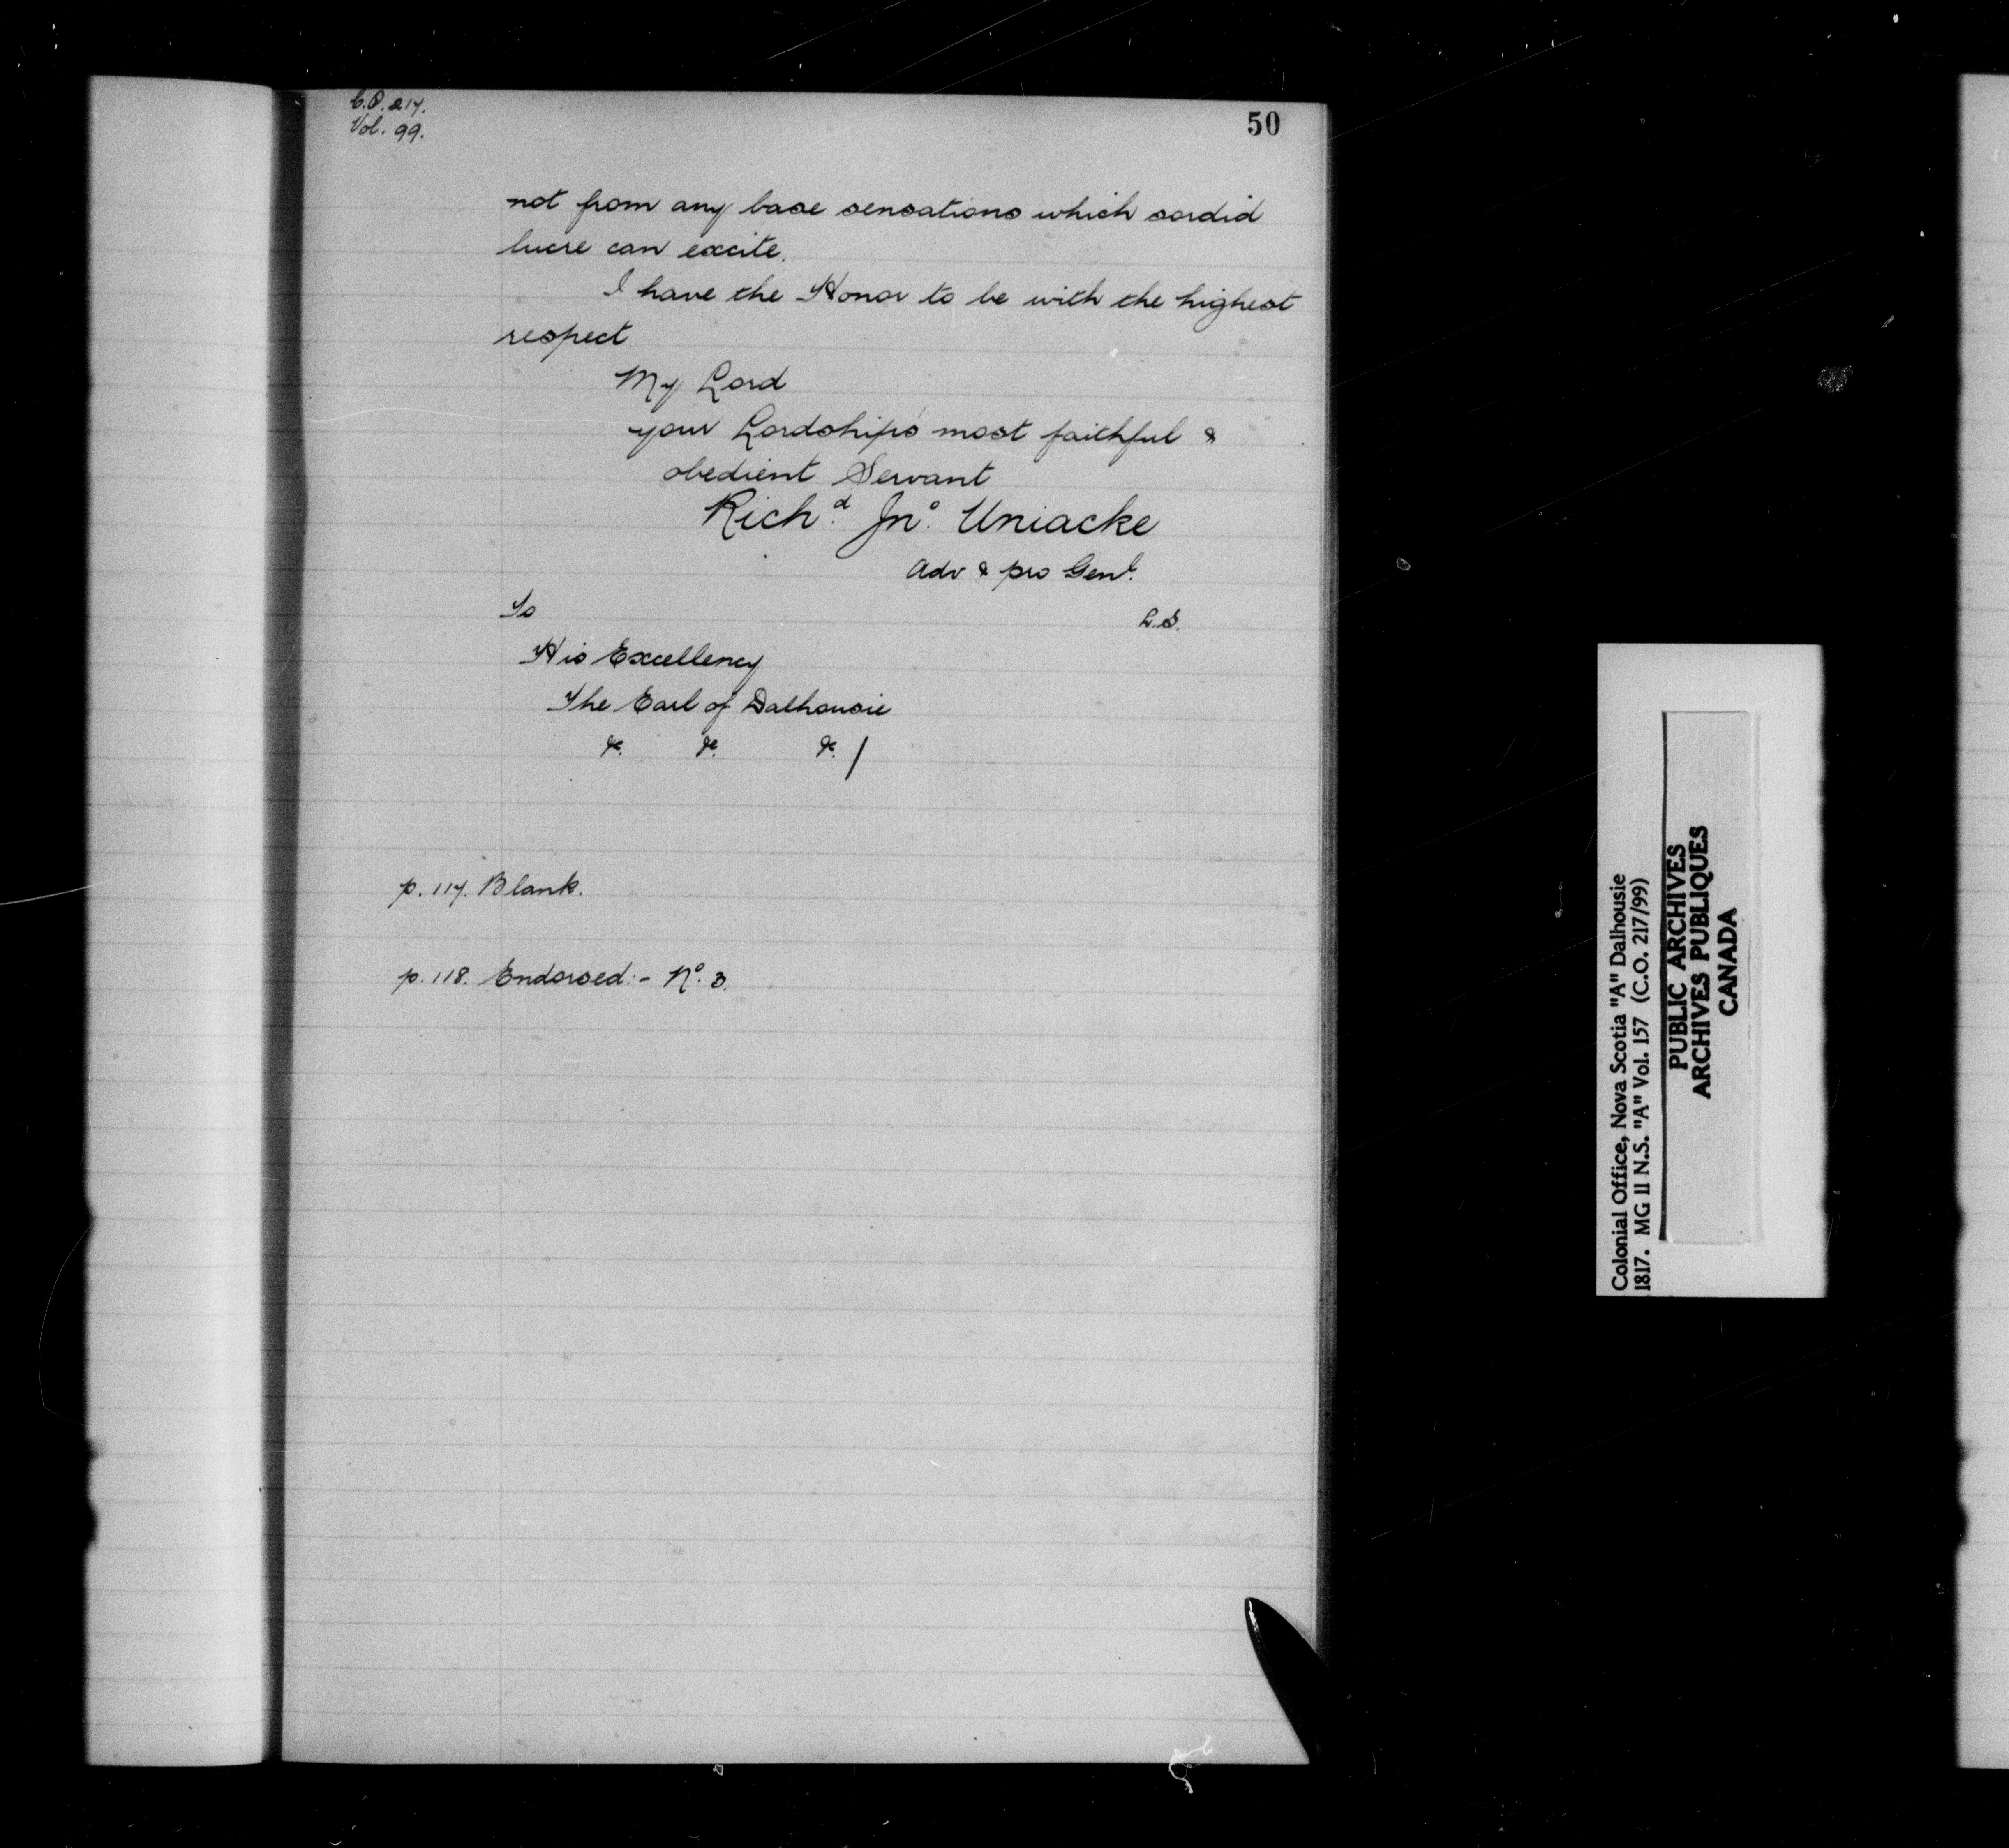 C.O. 217.
Vol. 99.
50
not from any base sensations which sordid
lucre can excite.
I have the Honor to be with the highest
respect
My Lord
your Lordship's most faithful &
obedient Servant
Rich.d Jno. Uniacke
Adv & pro Genl.
To
L.S.
His Excellency
The Earl of Dalhousie
&c. &c. &c. /
p. 117. Blank.
p. 118. Endorsed:- No. 3.
Colonial Office, Nova Scotia "A" Dalhousie
1817. MG 11 N.S. "A" Vol. 157 (C.O. 217/99)
PUBLIC ARCHIVES
ARCHIVES PUBLIQUES
CANADA